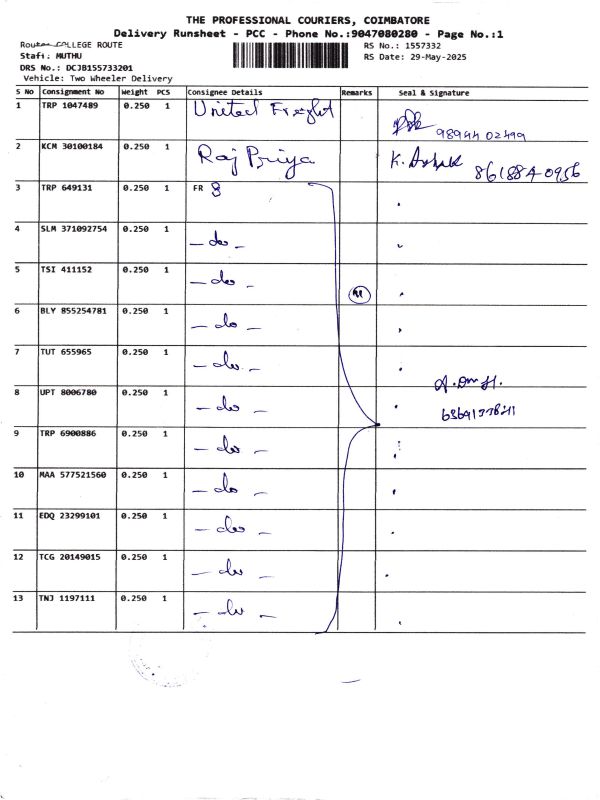 THE PROFESSIONAL COURIERS, COIMBATORE
Delivery Runsheet - PCC - Phone No.:9047080280 - Page No.:1
Route: COLLEGE ROUTE
RS No.: 1557332
Staff: MUTHU
RS Date: 29-May-2025
DRS No.: DCJB155733201
Vehicle: Two Wheeler Delivery
S No Consignment No Weight PCS Consignee Details Remarks Seal & Signature
1 TRP 1047489 0.250 1 United Freight
98944 02499
2 KCM 30100184 0.250 1 Raj Priya K. Ashok 861884 0956
3 TRP 649131 0.250 1 FR 8
4 SLM 371092754 0.250 1 - do -
5 TSI 411152 0.250 1 - do -
11
6 BLY 855254781 0.250 1 - do -
7 TUT 655965 0.250 1 - do -
8 UPT 8006780 0.250 1 - do -
9 TRP 6900886 0.250 1 - do -
10 MAA 577521560 0.250 1 - do -
11 EDQ 23299101 0.250 1 - do -
12 TCG 20149015 0.250 1 - do -
13 TNJ 1197111 0.250 1 - do -